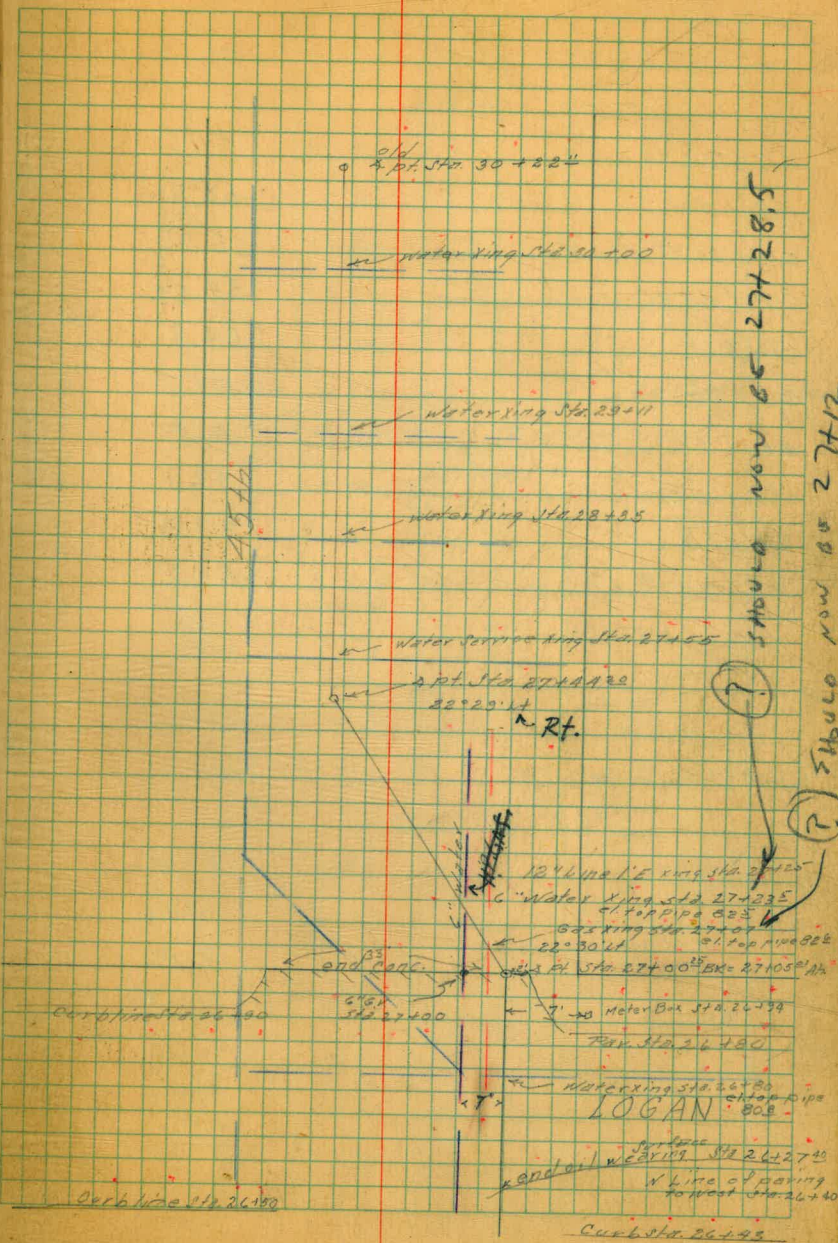 old
∆ pt. Sta. 30+22⁴
Water Xing Sta 30+00
Water Xing Sta. 29+11
45th
Water Xing Sta. 28+35
Water Service Xing Sta. 27+55
∆ pt. Sta. 27+44²⁰
22°29' Lt
Rt.
SHOULD NOW BE 27+28.5
?
SHOULD NOW BE 27+12
?
6" Water
12" Line 1' E Xing Sta. 27+25
6" Water Xing Sta. 27+23⁵
el. top pipe 82⁵
Gas Xing Sta. 27+07
el. top pipe 82²
22°30' Lt
end conc.
∆ Pt. Sta. 27+00²⁵ BK = 27+05
6" G.V.
Sta. 27+00
7' Meter Box Sta. 26+94
Curb line Sta. 26+90
Pav. Sta. 26+80
Water Xing Sta. 26+80
el. top pipe
80⁸
7'
LOGAN
end oil wearing surface Sta 26+27⁴⁰
N Line of paving
to west Sta. 26+40
Curb line Sta. 26+50
Curb Sta. 26+43